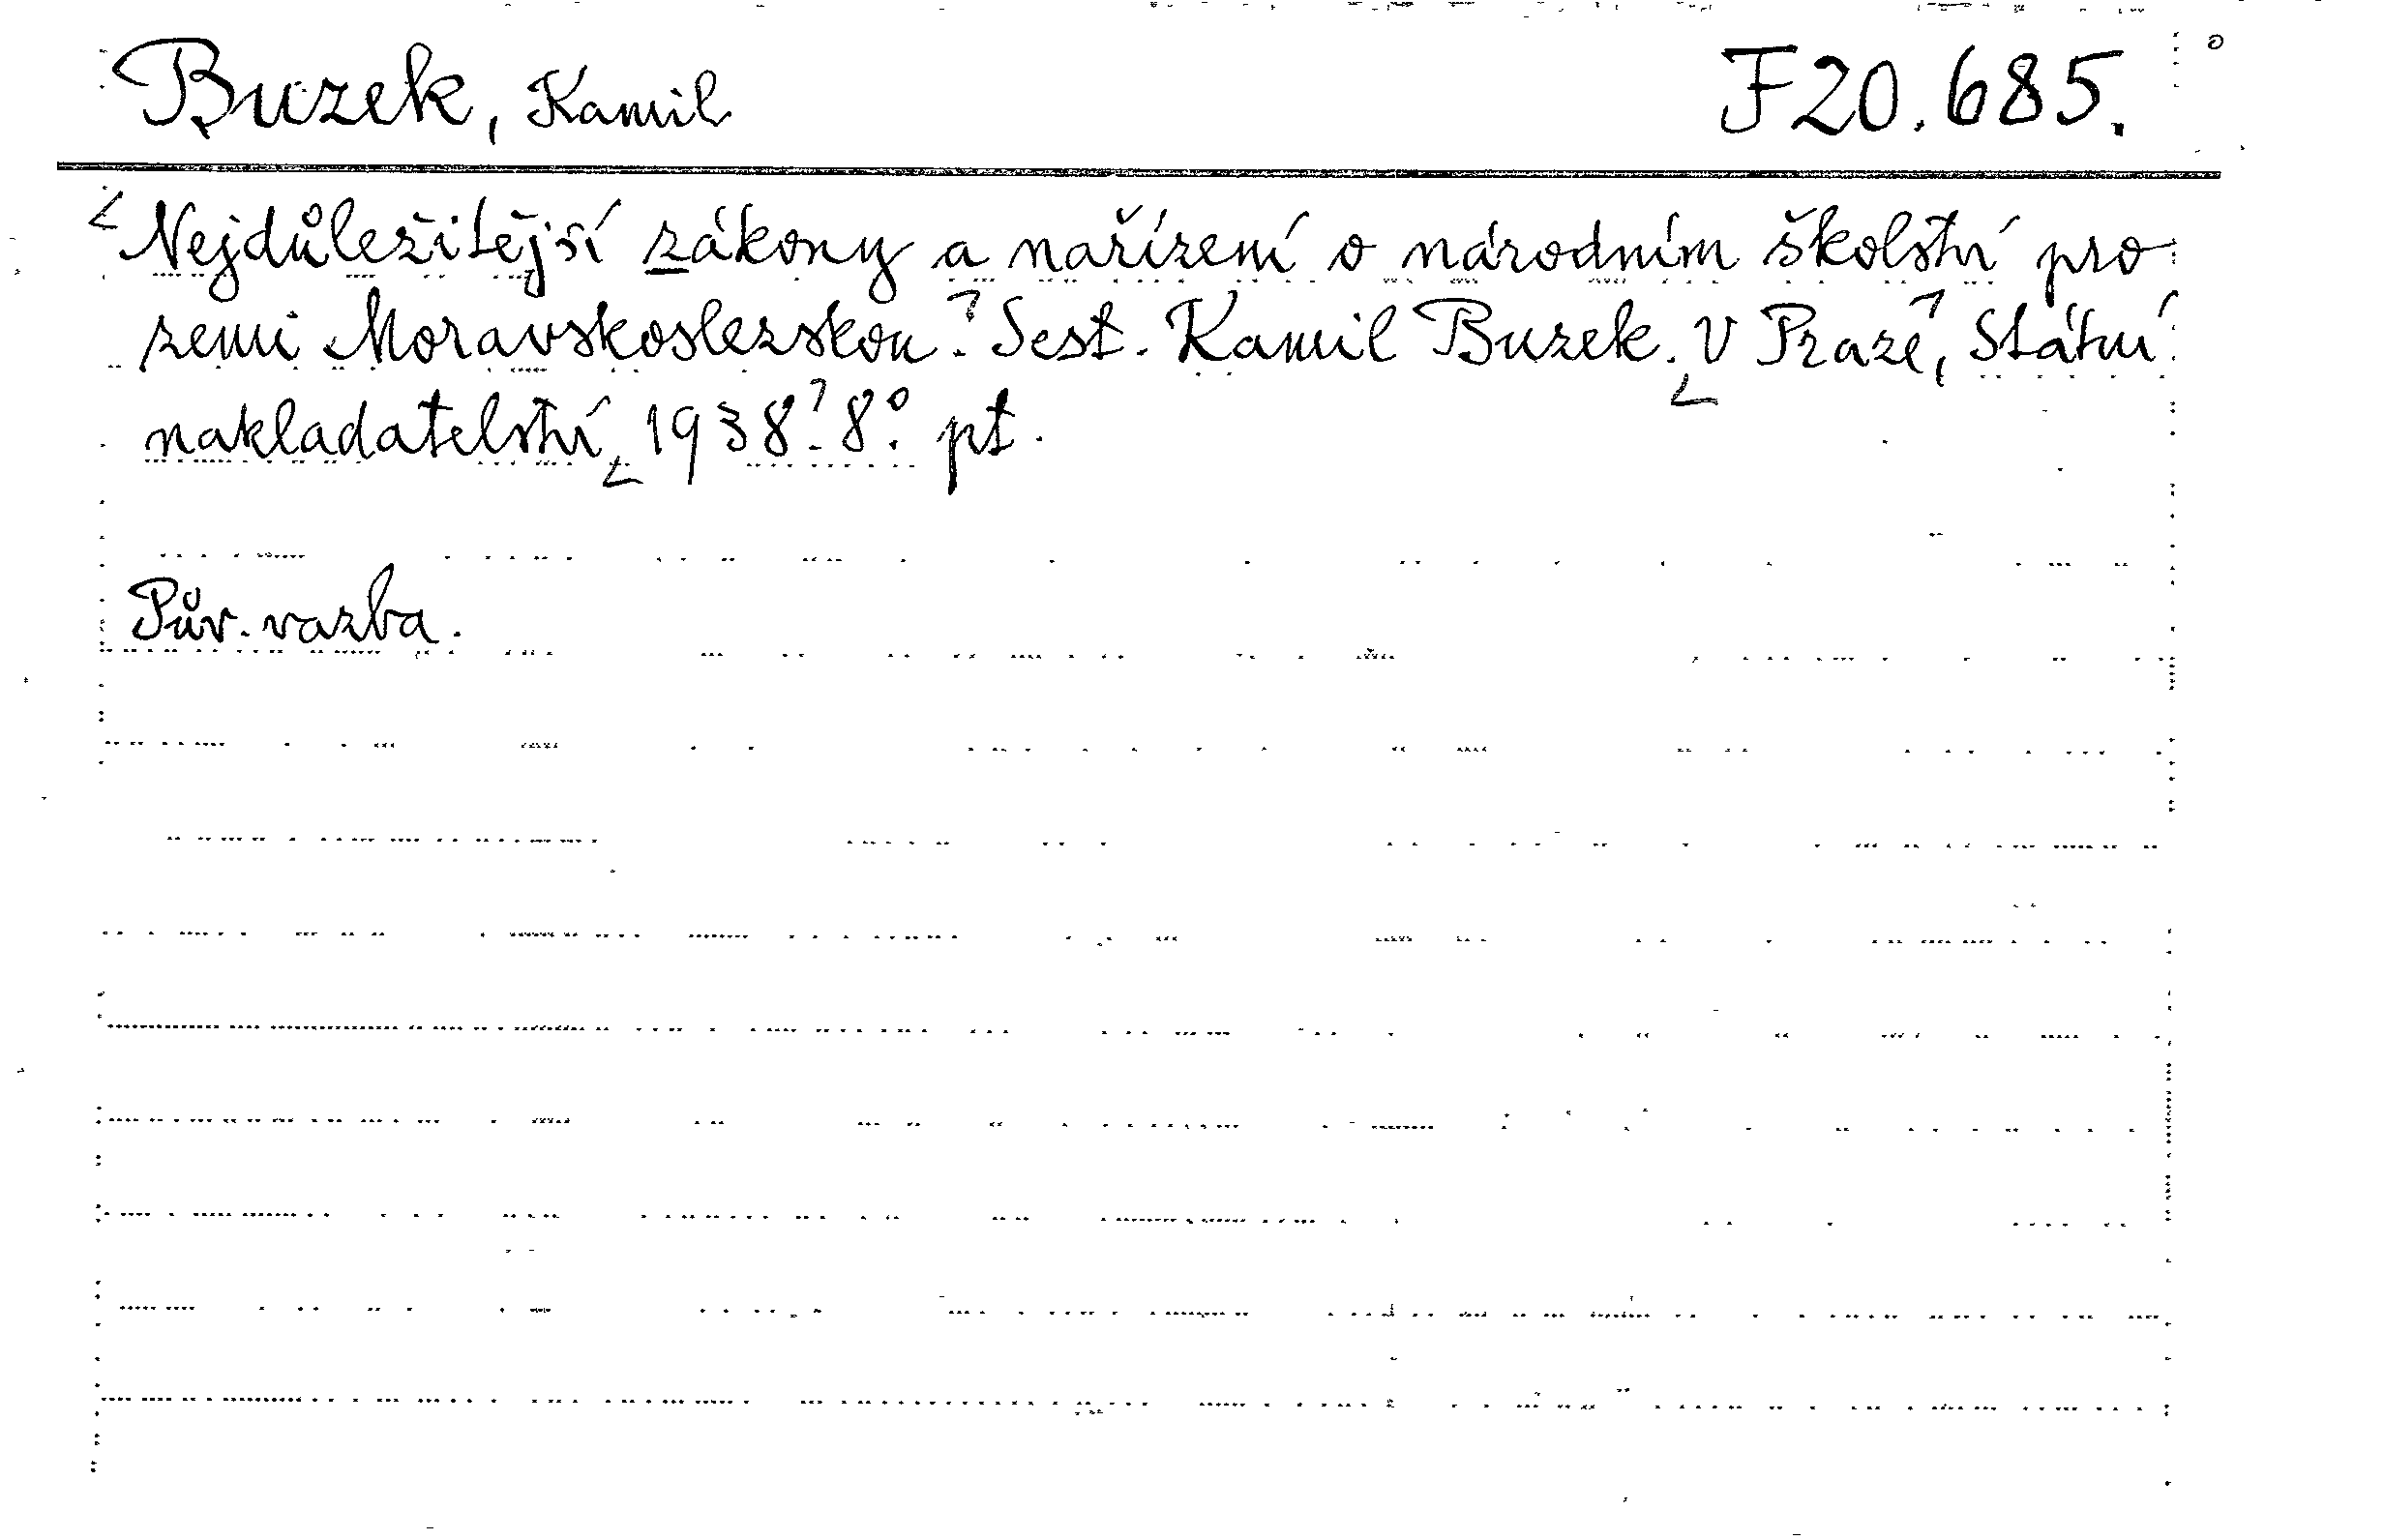 Buzek, Kamil F20.685.
Nejdůležitější zákony a nařízení o národním školství pro
zemi Moravskoslezskou. Sest. Kamil Buzek. V Praze, Státní
nakladatelství, 1938. 8°. pt.
Pův. vazba.